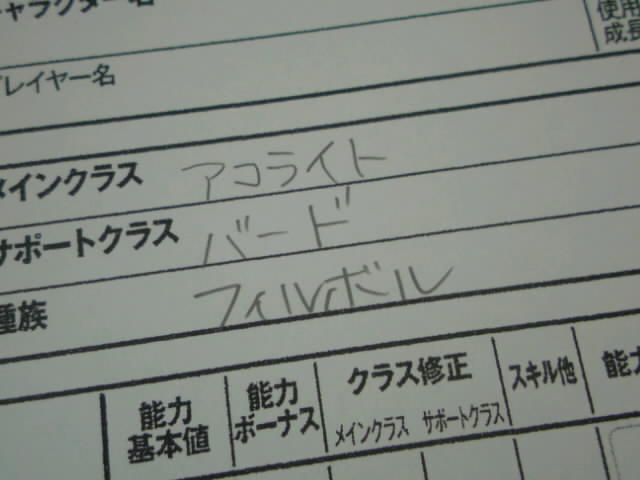 ャラクター名
使用
成長
レイヤー名
メインクラス アコライト
サポートクラス バード
種族 フィルボル
能力
基本値
能力
ボーナス
クラス修正
メインクラス サポートクラス
スキル他
能力